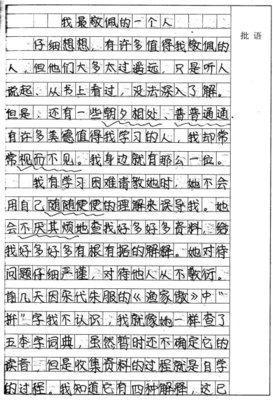 我最敬佩的一个人
批语
仔细想想，有许多值得我敬佩的
人，但他们大多太过遥远，只是听人
说起、从书上看过，没法深入了解。
但是，还有一些朝夕相处、普普通通、
有许多美德值得我学习的人，我却常
常视而不见。我身边就有那么一位。
我有学习困难请教她时，她不会
用自己随随便便的理解来误导我。她
会不厌其烦地查找好多好多资料，给
我好多好多有根有据的解释。她对待
问题仔细严谨，对待他人从不敷衍。
几天因宋代朱服的《渔家傲》中“
字我不认识，我就像她一样查了
五本字词典，虽然暂时还不确定它的
读音，但是收集资料的过程就是自学
的过程。我知道它有四种解释，这已